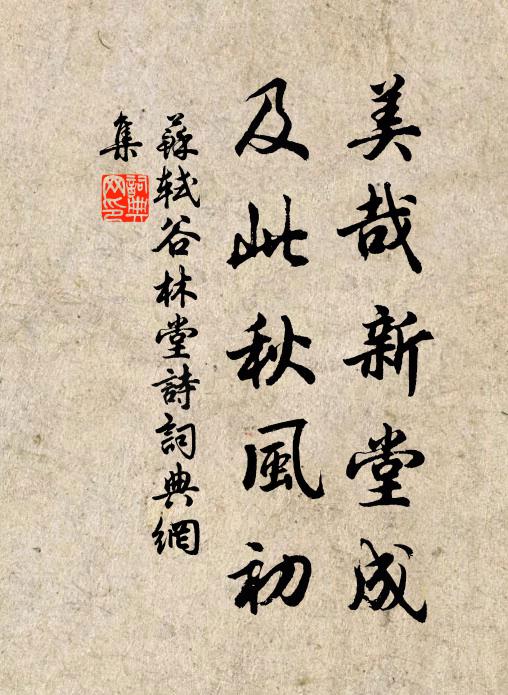 美哉新堂成
及此秋風初
蘇軾谷林堂詩詞典網
集
詞典
网印